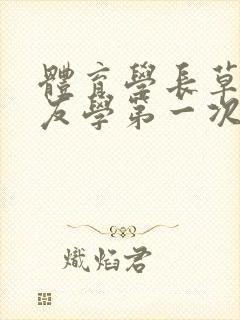 體育學長草
友學第一次
熾焰君